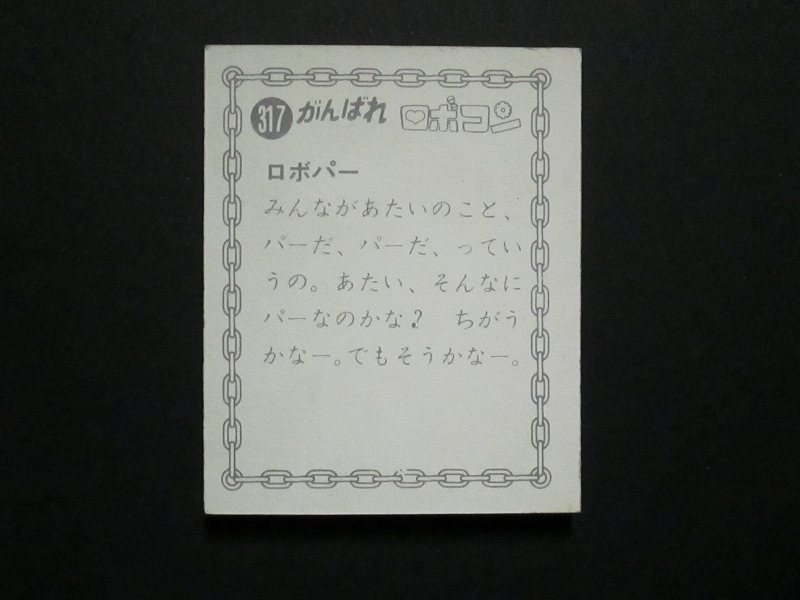 317 がんばれ ロボコン
ロボパー
みんながあたいのこと、
パーだ、パーだ、ってい
うの。あたい、そんなに
パーなのかな? ちがう
かなー。でもそうかなー。